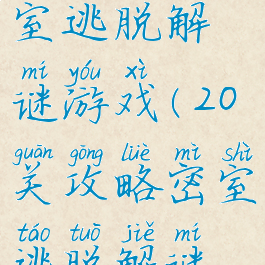 室逃脱解
mí yóu xì
谜游戏(20
guān gōng lüè mì shì
关攻略密室
táo tuō jiě mí
逃脱解谜